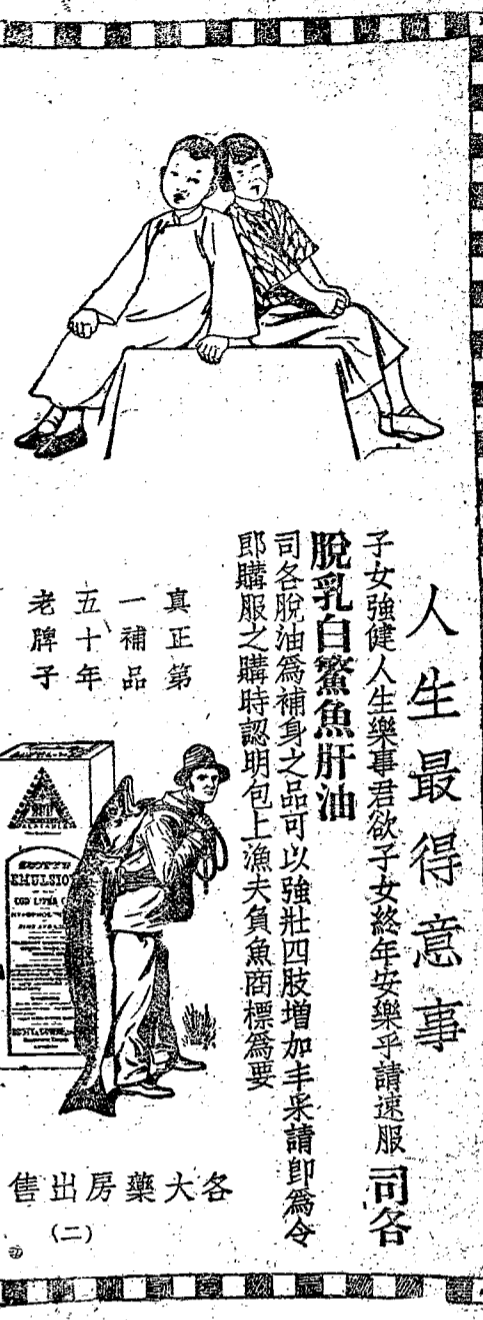 人生最得意事
子女強健人生樂事君欲子女終年安樂乎請速服司各
脫乳白鰵魚肝油
司各脫油為補身之品可以強壯四肢增加丰采請即為令
郎購服之購時認明包上漁夫負魚商標為要
真正第
一補品
五十年
老牌子
EMULSION
COD LIVER
各大藥房出售
(二)